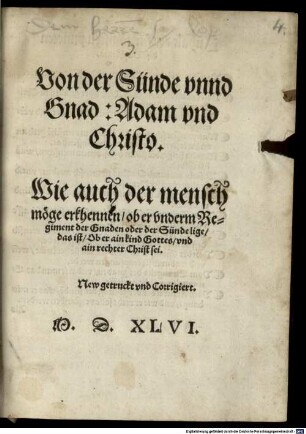 3.
4.
Von der Sünde vnnd
Gnad : Adam vnd
Christo.
Wie auch der mensch
möge erkhennen / ob er vnderm Re-
giment der Gnaden oder der Sünde lige /
das ist / Ob er ain kind Gottes / vnd
ain rechter Christ sei.
New getruckt vnd Corrigiert.
M. D. XLVI.